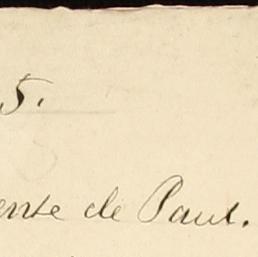 5.
ente de Paul.